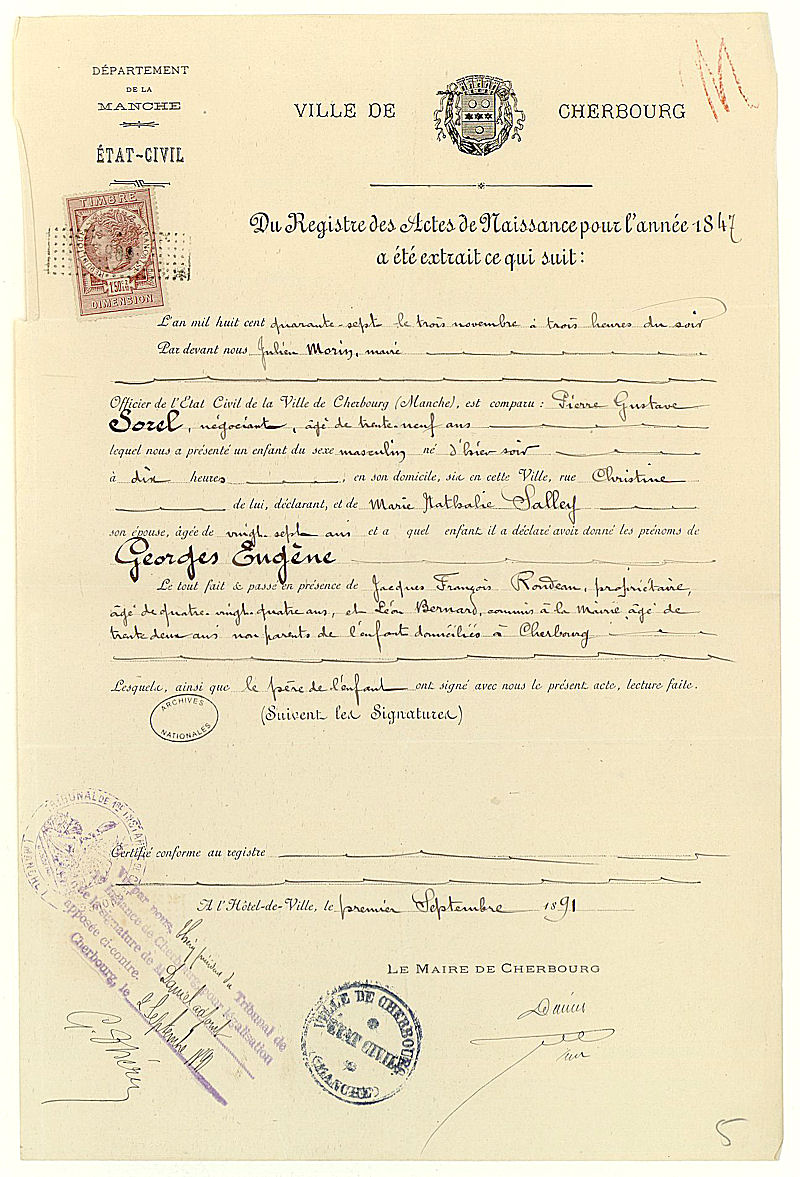 DÉPARTEMENT
DE LA
MANCHE
ÉTAT-CIVIL
VILLE DE CHERBOURG
TIMBRE
RÉPUBLIQUE FRANÇAISE
1F50c
DIMENSION
Du Registre des Actes de Naissance pour l'année 1847
a été extrait ce qui suit:
L'an mil huit cent quarante-sept le trois novembre à trois heures du soir
Par devant nous Julien Morin, maire
Officier de l'Etat Civil de la Ville de Cherbourg (Manche), est comparu : Pierre Gustave
Sorel, négociant, âgé de trente neuf ans
lequel nous a présenté un enfant du sexe masculin né d'hier soir
à dix heures , en son domicile, sis en cette Ville, rue Christine
de lui, déclarant, et de Marie Nathalie Salley
son épouse, âgée de vingt sept ans et a quel enfant il a déclaré avoir donné les prénoms de
Georges Eugène
Le tout fait & passé en présence de Jacques François Rondeau, propriétaire,
âgé de quatre-vingt-quatre ans, et Léon Bernard, commis à la Mairie, âgé de
trente deux ans non parents de l'enfant domiciliés à Cherbourg
Lesquels, ainsi que le père de l'enfant ont signé avec nous le présent acte, lecture faite.
(Suivent les Signatures)
ARCHIVES
NATIONALES
Certifié conforme au registre
A l'Hôtel-de-Ville, le premier Septembre 1891
LE MAIRE DE CHERBOURG
TRIBUNAL DE 1RE INSTANCE
(MANCHE)
Vu par nous, président du Tribunal de
1re Instance de Cherbourg pour légalisation
de la signature de M
apposée ci-contre.
Cherbourg, le 2 Septembre 1891
VILLE DE CHERBOURG
ÉTAT CIVIL
(MANCHE)
5